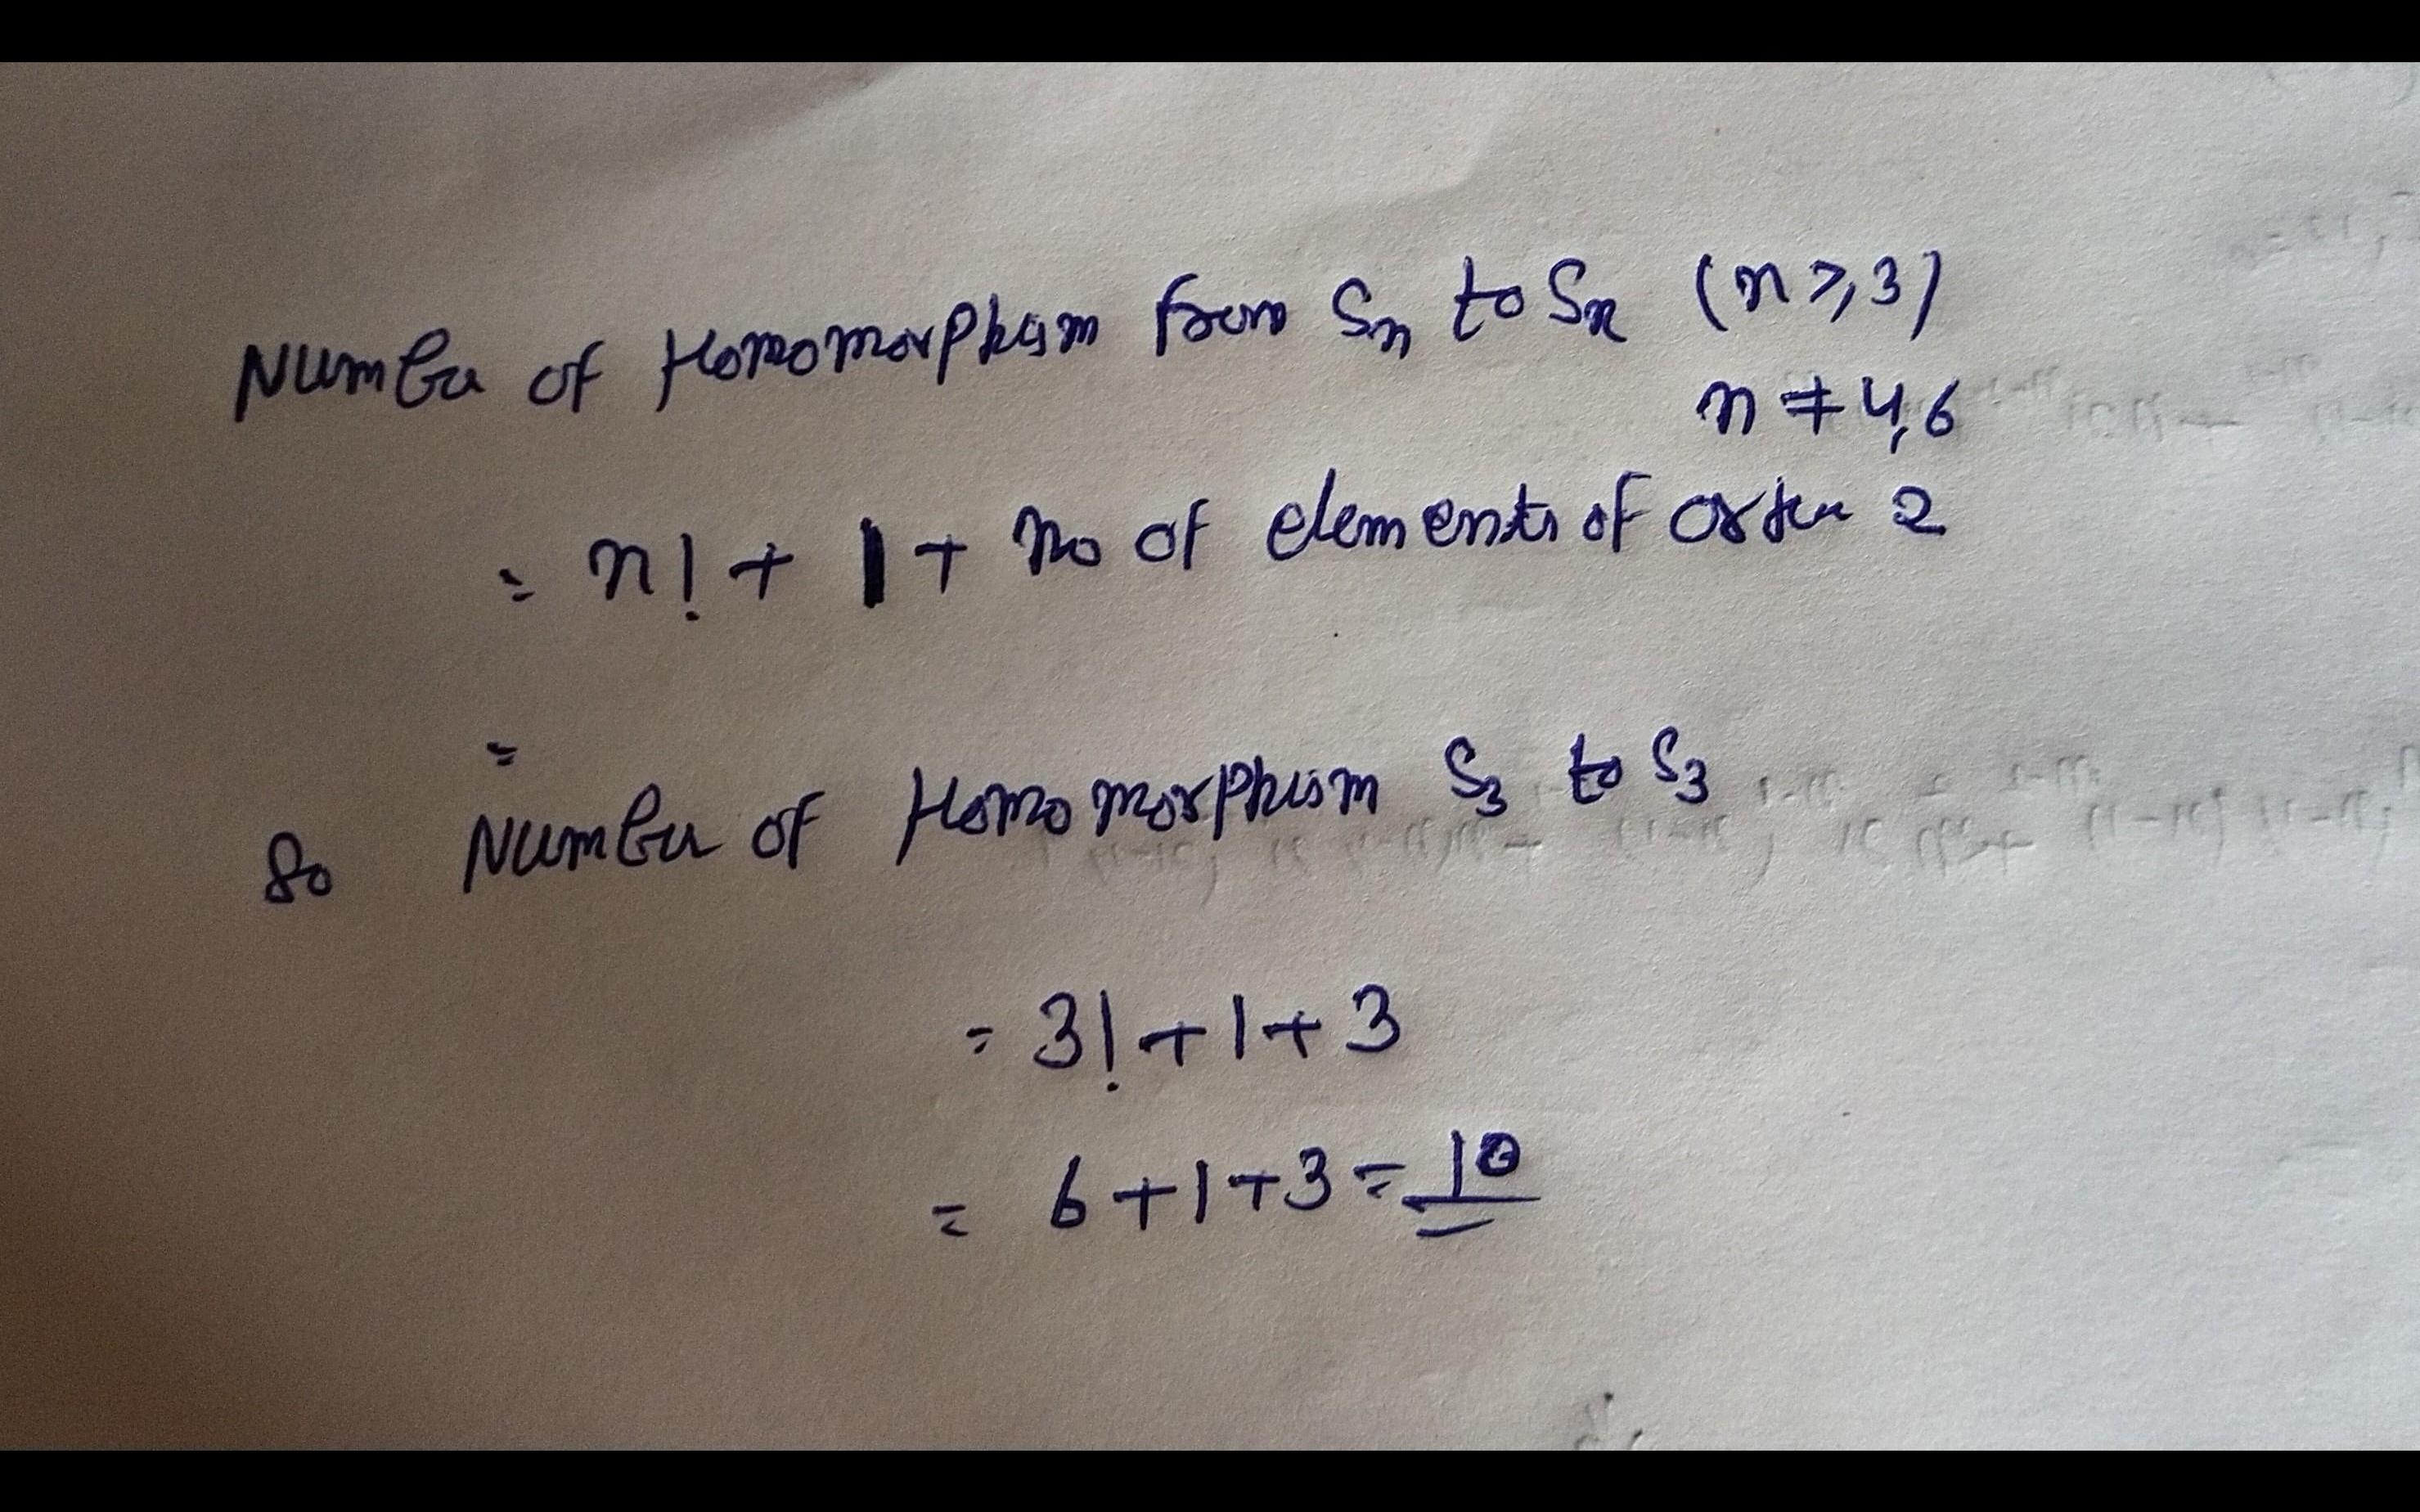 Number of Homomorphism from Sn to Sn (n ≥ 3)
n ≠ 4,6
= n! + 1 + no of elements of order 2
=
So Number of Homomorphism S3 to S3
= 3! + 1 + 3
= 6 + 1 + 3 = 10